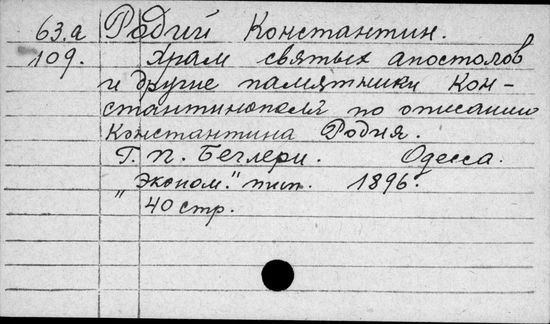 63.а Родий Константин.
109. Храм святых апостолов
и другие памятники Кон-
стантинополя по описанию
Константина Родия.
Г. П. Беглери. Одесса.
"Эконом." тип. 1896.
40 стр.